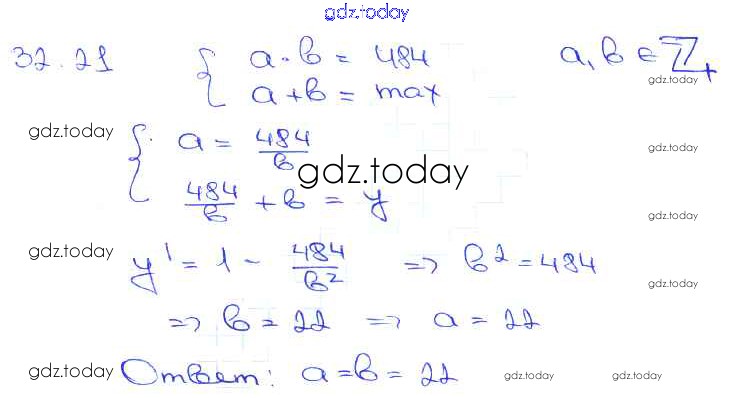 gdz.today
32.21 { a·b = 484 a, b ∈ ℤ₊
gdz.today
a+b = max
gdz.today { a = 484/b gdz.today
gdz.today
484/b + b = y gdz.today
gdz.today y' = 1 - 484/b² => b² = 484
gdz.today
=> b = 22 => a = 22
gdz.today Ответ: a=b= 22 gdz.today gdz.today